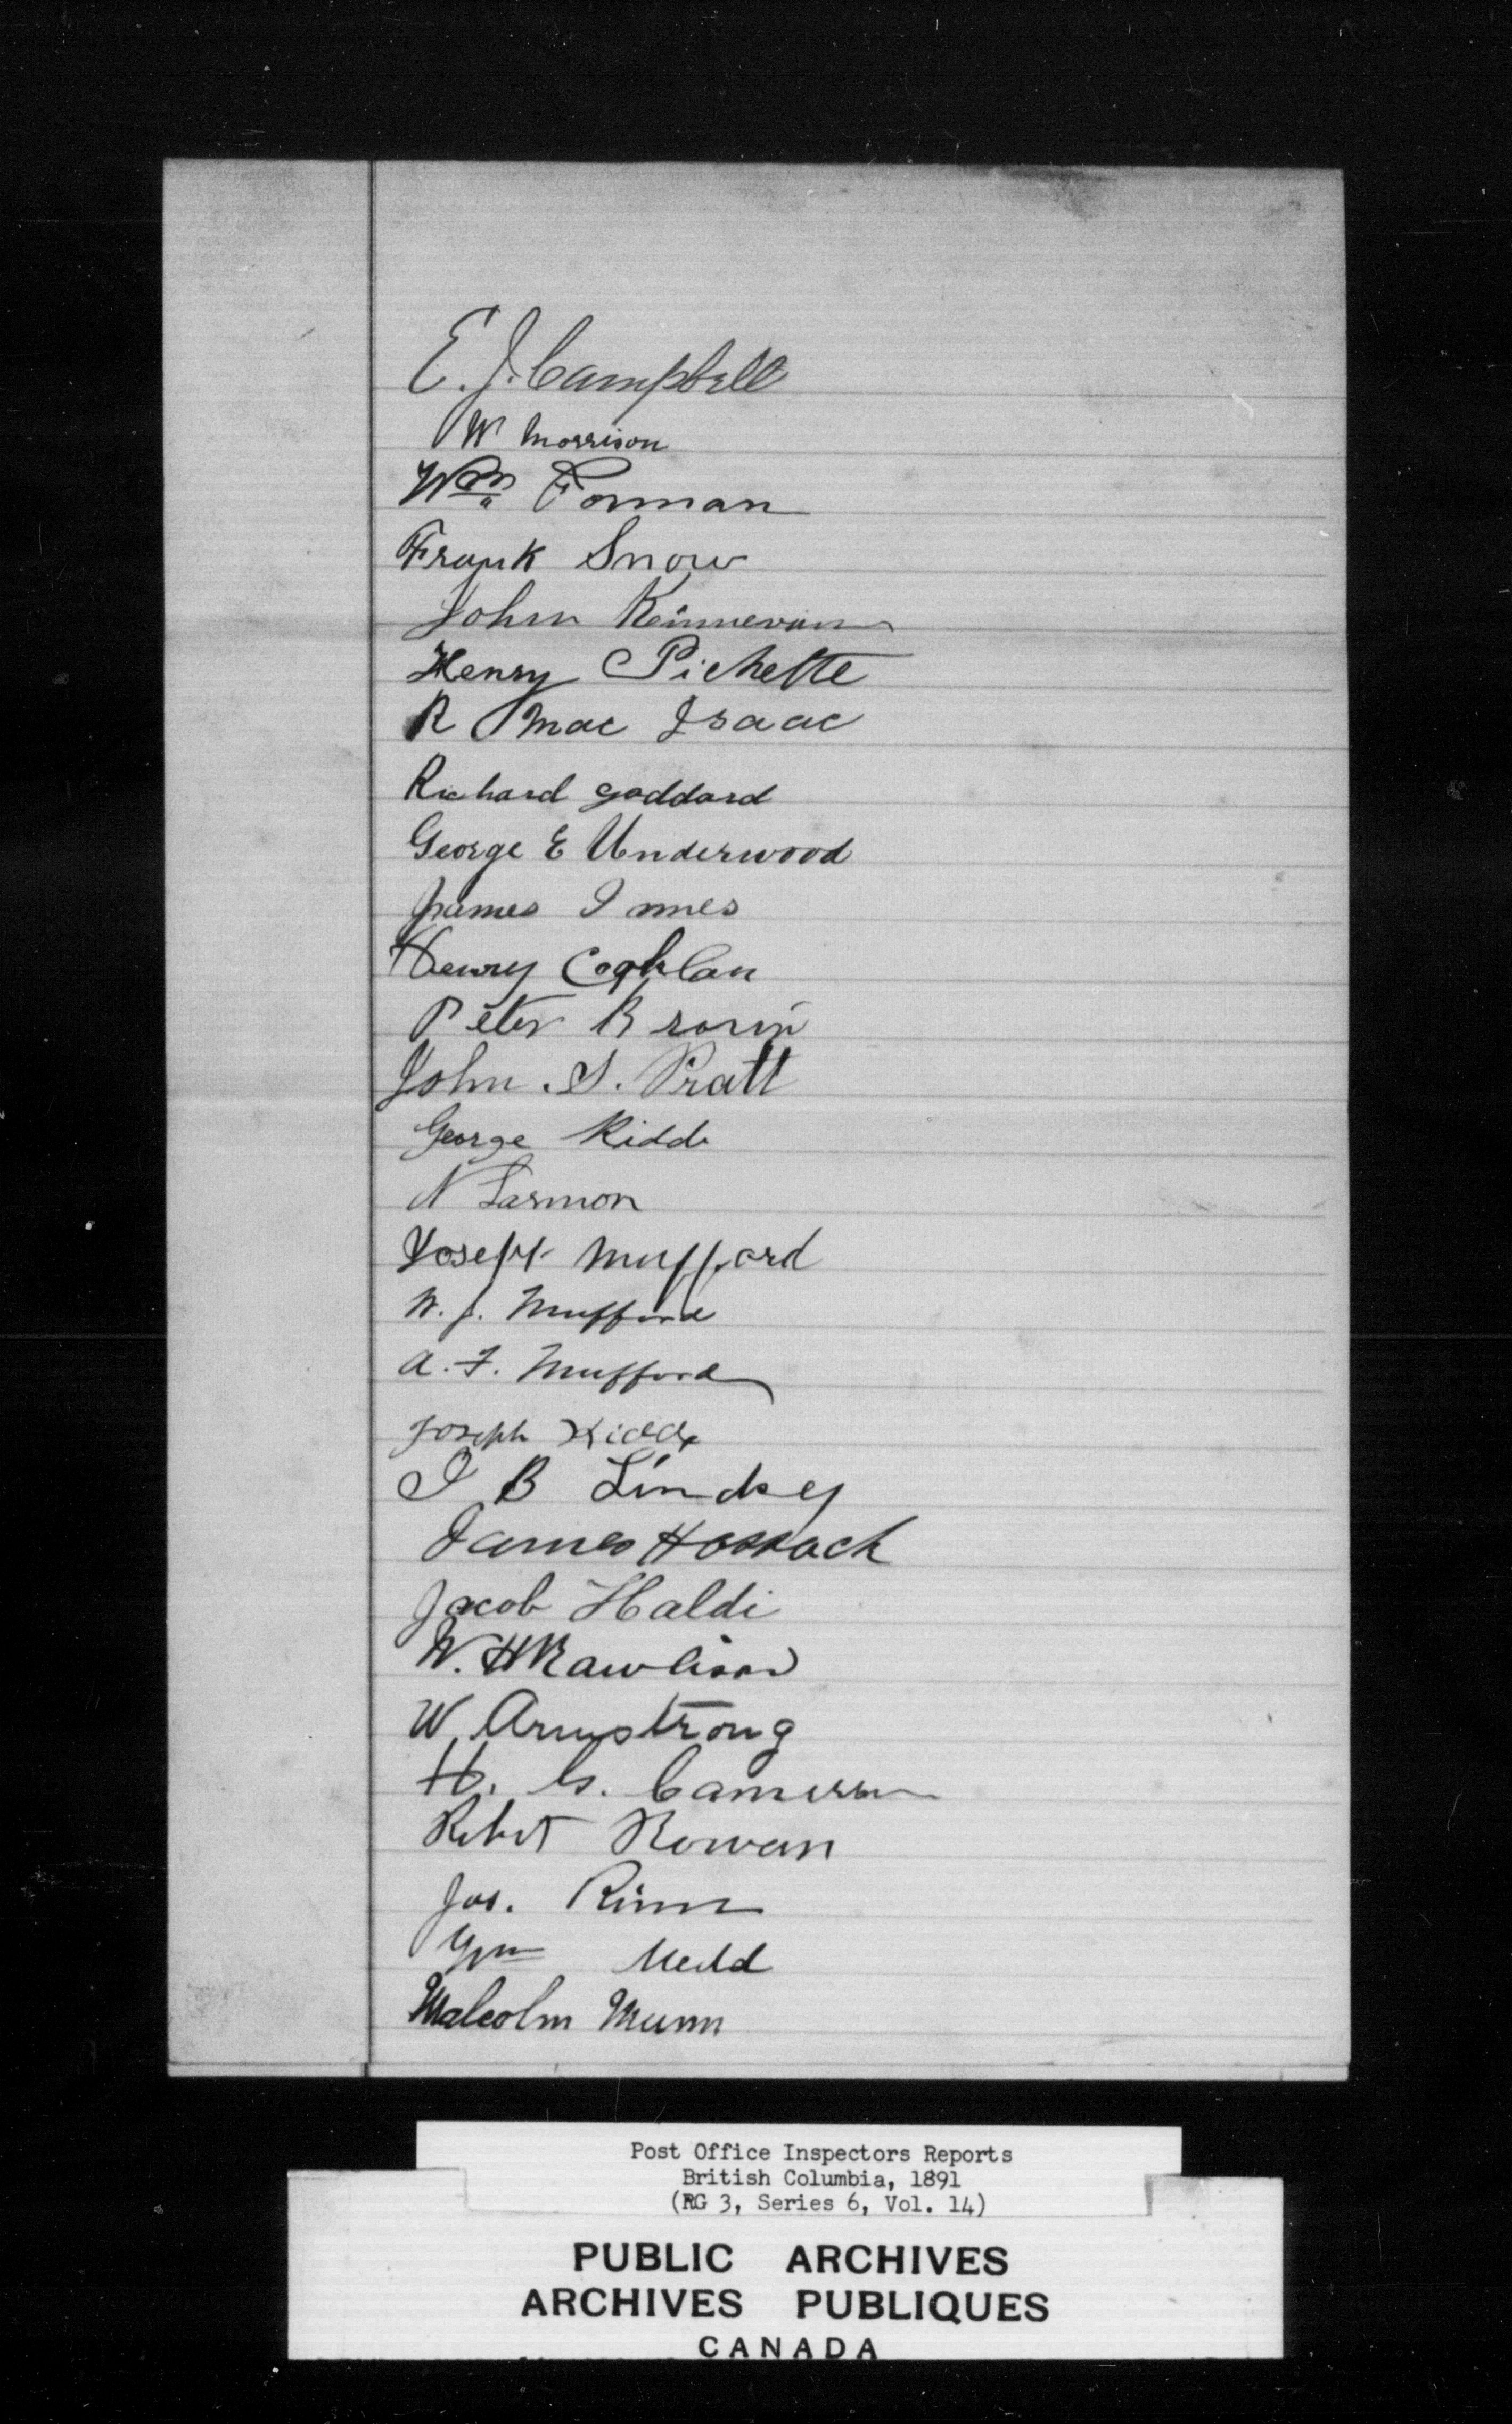 E. J. Campbell
W Morrison
Wm Forman
Frank Snow
John Kinnevan
Henry Pichette
R Mac Isaac
Richard goddard
George E Underwood
James Innes
Henry Coghlan
Peter Brown
John . S. Pratt
George Kidd
N Larmon
Joseph Mufford
W. J. Mufford
A. F. Mufford
Joseph Kidd
I B Lindsey
James Hossack
Jacob Haldi
W. H Rawlison
W. Armstrong
H. G. Cameron
Robt Rowan
Jos. Rinn
Wm Medd
Malcolm Munn
Post Office Inspectors Reports
British Columbia, 1891
(RG 3, Series 6, Vol. 14)
PUBLIC ARCHIVES
ARCHIVES PUBLIQUES
CANADA